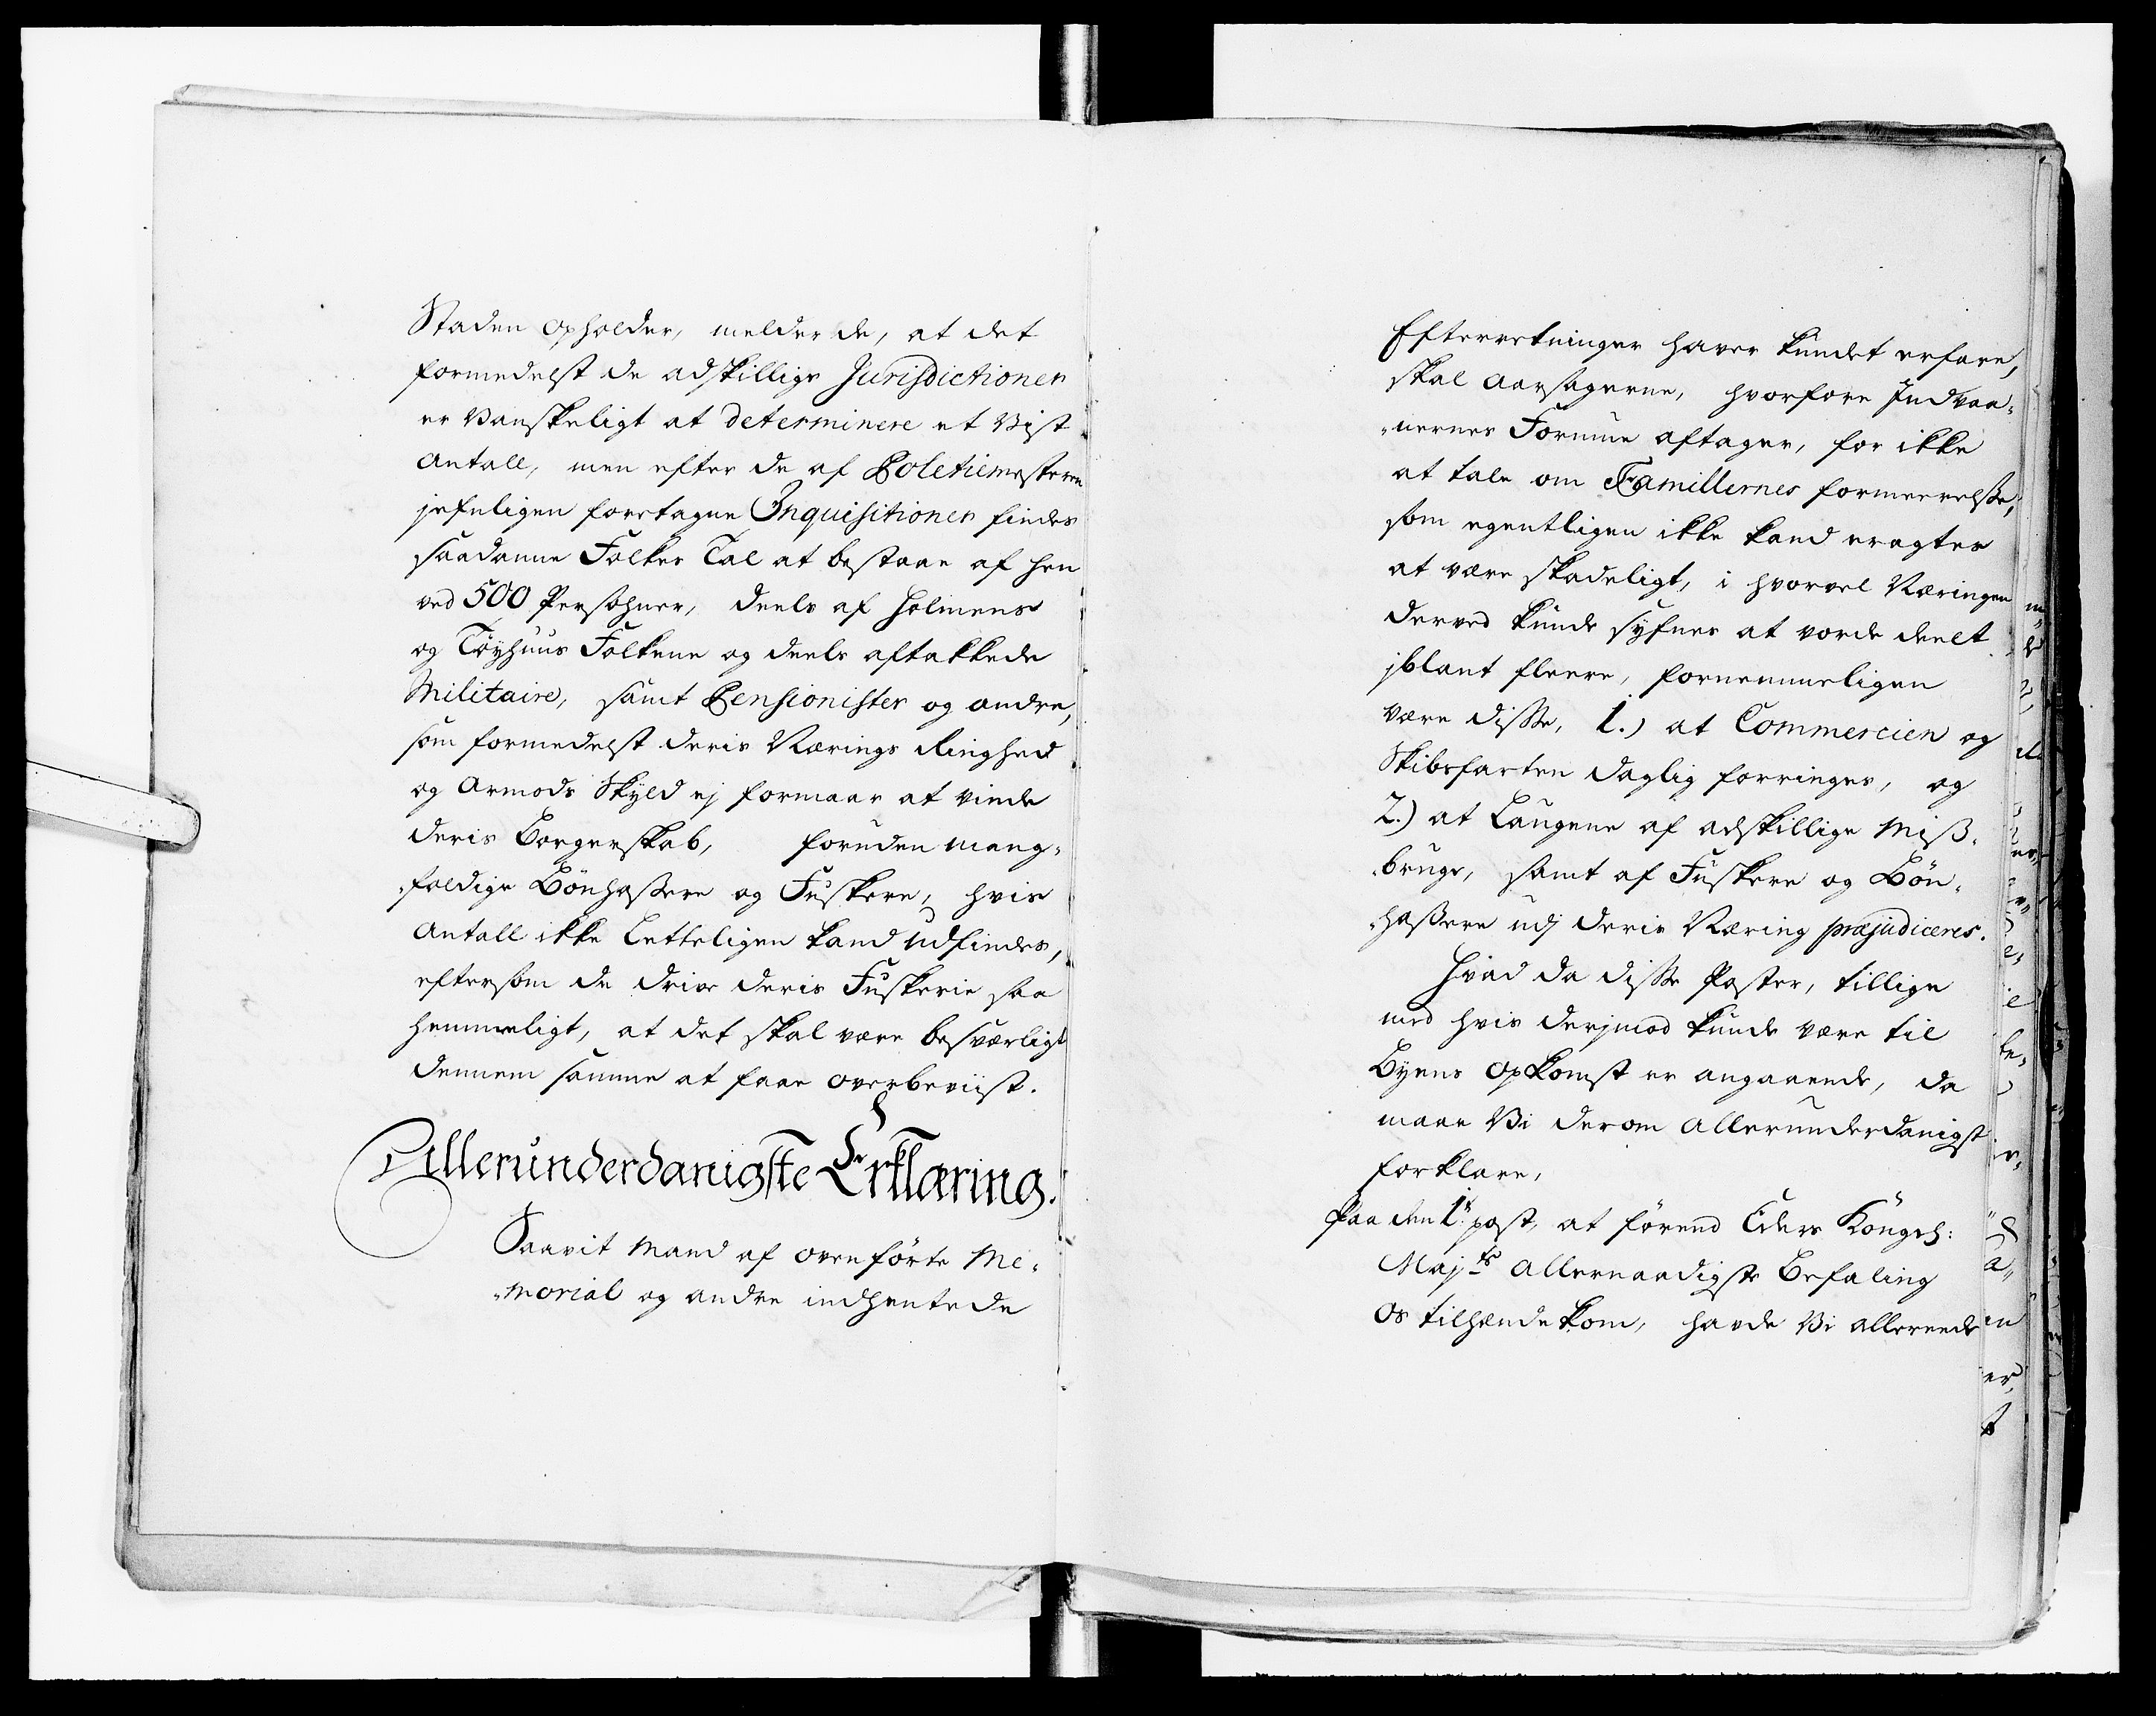 Staden opholder, melder de, at det
formedelst de adskillige Jurisdictioner
er vanskeligt at determinere et Vist
Antall, men efter de af Poletiemesteren
jefnligen foretagne Inquisitioner findes
saadanne Folkes Tal at bestaae af hen
ved 500 Persohner, deels af Holmens
og Töyhuus Folkene og deels aftakkede
Militaire, samt Pensionister og andre,
som formedelst deris Nærings Ringhed
og Armods Skyld ej formaar at vinde
deris Borgerskab, foruden mang„
„foldige Bönhassere og Fuskere, hvis
Antall ikke Letteligen kand udfindes,
eftersom de driver deris Fuskerie saa
hemmeligt, at det skal være besværligt
dennem samme at faae overbeviist.
Allerunderdanigste Erklæring.
Saavit Mand af ovenförte Me„
„morial og andre indhentede
Efterretninger haver kundet erfare,
skal Aarsagerne, hvorfore Indvaa„
„nernes Formue aftager, for ikke
at tale om Familiernes formeerelse,
som egentligen ikke kand eragtes
at være skadeligt, i hvorvel Næringen
derved kunde syfnes at vorde deelt
jblant fleere, fornemmeligen
være disse, 1.) at Commercien og
Skibsfarten daglig forringes, og
2.) at Laugene af adskillige Miß„
„bruge, samt af Fuskere og Bön„
„haßere udj deris Næring præjudiceres.
Hvad da disse Poster, tillige
med hvis derjmod kunde være til
Byens Opkomst er angaaende, da
maae Vi derom allerunderdanigst
forklare,
Paa den 1te post, at förend Eders Kongel:
Majts Allernaadigste Befaling
os tilhænde kom, havde Vi allereede